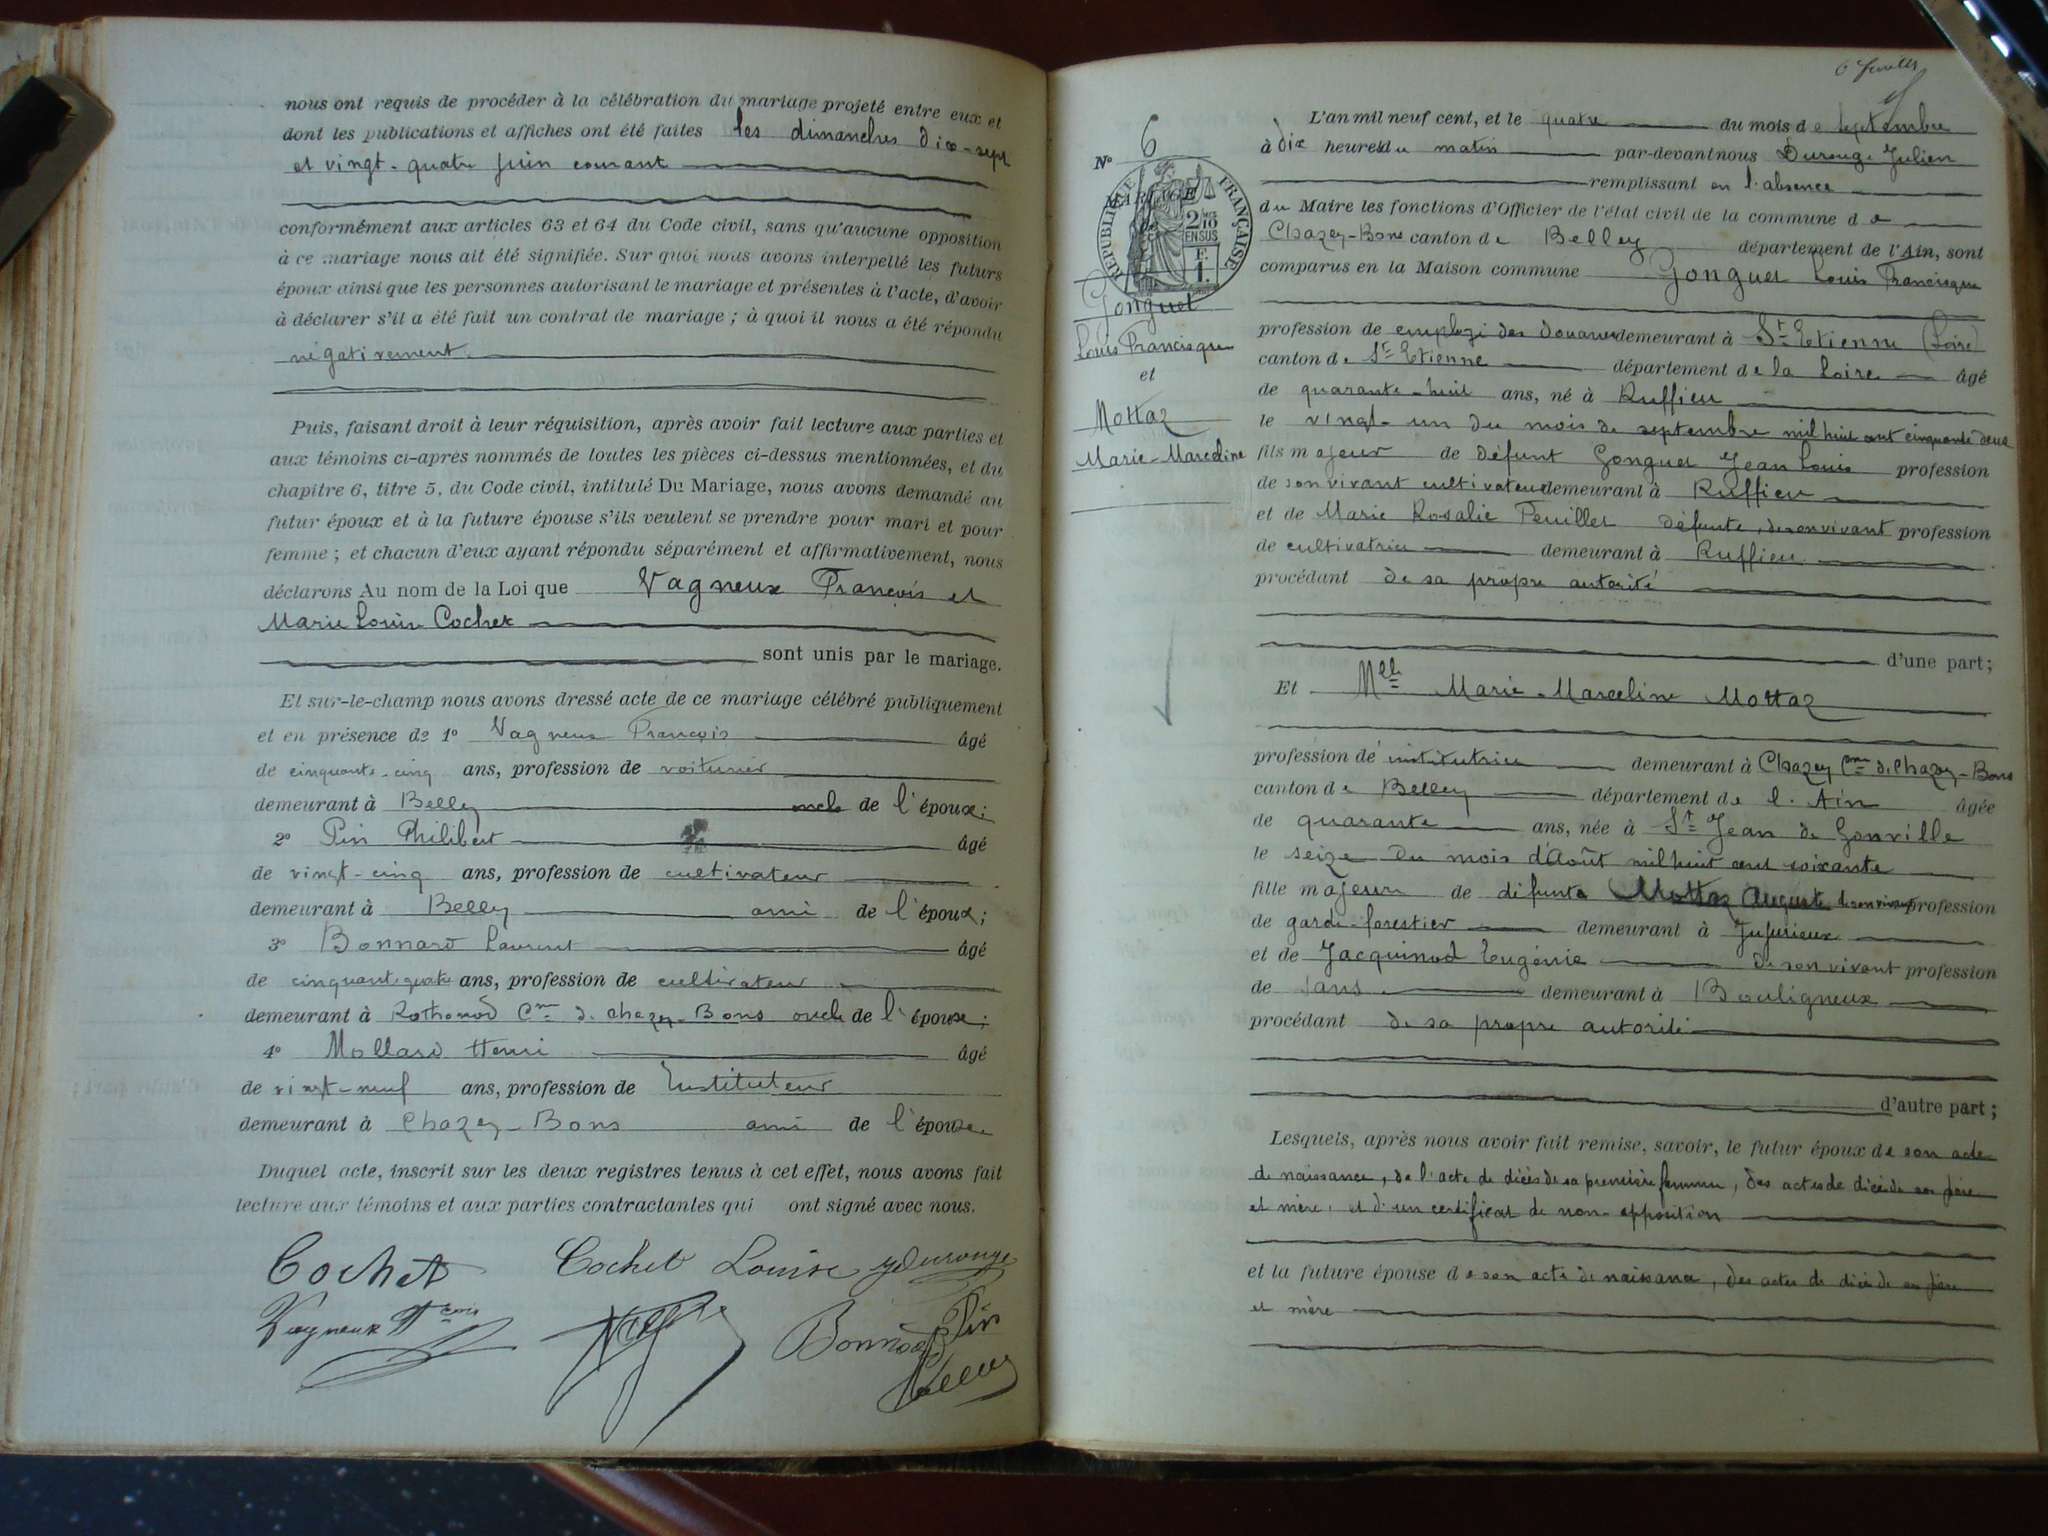 nous ont requis de procéder à la célébration du mariage projeté entre eux et
dont les publications et affiches ont été faites les dimanches dix-sept
et vingt-quatre juin courant
conformément aux articles 63 et 64 du Code civil, sans qu'aucune opposition
à ce mariage nous ait été signifiée. Sur quoi nous avons interpellé les futurs
époux ainsi que les personnes autorisant le mariage et présentes à l'acte, d'avoir
à déclarer s'il a été fait un contrat de mariage ; à quoi il nous a été répondu
négativement.
Puis, faisant droit à leur réquisition, après avoir fait lecture aux parties et
aux témoins ci-après nommés de toutes les pièces ci-dessus mentionnées, et du
chapitre 6, titre 5, du Code civil, intitulé Du Mariage, nous avons demandé au
futur époux et à la future épouse s'ils veulent se prendre pour mari et pour
femme ; et chacun d'eux ayant répondu séparément et affirmativement, nous
déclarons Au nom de la Loi que Vagneux François et
Marie Louise Cochet
sont unis par le mariage.
Et sur-le-champ nous avons dressé acte de ce mariage célébré publiquement
et en présence de 1° Vagneux François âgé
de cinquante-cinq ans, profession de voiturier
demeurant à Belley oncle de l'époux ;
2° Pin Philibert âgé
de vingt-cinq ans, profession de cultivateur
demeurant à Belley ami de l'époux ;
3° Bonnard Laurent âgé
de cinquante-quatre ans, profession de cultivateur
demeurant à Rothonod Cne de Chazey-Bons oncle de l'épouse ;
4° Mollard Henri âgé
de vingt-neuf ans, profession de Instituteur
demeurant à Chazey-Bons ami de l'épouse
Duquel acte, inscrit sur les deux registres tenus à cet effet, nous avons fait
lecture aux témoins et aux parties contractantes qui ont signé avec nous.
Cochet Cochet Louise JDurouge
Vagneux Fçois Bonnard Pin
6e feuillet
N° 6
RÉPUBLIQUE FRANÇAISE
MARIAGE
2/10 EN SUS
F. 1
Gonguet
Louis Francisque
et
Mottaz
Marie-Marceline
L'an mil neuf cent, et le quatre du mois de septembre
à dix heures du matin par-devant nous Durouge Julien
remplissant en l'absence
du Maire les fonctions d'Officier de l'état civil de la commune de
Chazey-Bons canton de Belley département de l'Ain, sont
comparus en la Maison commune Gonguet Louis Francisque
profession de employé des douanes demeurant à St Etienne (Loire)
canton de St Etienne département de la Loire âgé
de quarante-huit ans, né à Ruffieu
le vingt-un du mois de septembre mil huit cent cinquante deux
fils majeur de défunt Gonguet Jean Louis profession
de son vivant cultivateur demeurant à Ruffieu
et de Marie Rosalie Peuillet défunte, de son vivant profession
de cultivatrice demeurant à Ruffieu
procédant de sa propre autorité
d'une part ;
Et Melle Marie-Marceline Mottaz
profession de institutrice demeurant à Chazey Cne de Chazey-Bons
canton de Belley département de l'Ain âgée
de quarante ans, née à St Jean de Gonville
le seize du mois d'Août mil huit cent soixante
fille majeure de défunts Mottaz Auguste de son vivant profession
de garde-forestier demeurant à Jujurieux
et de Jacquinod Eugénie de son vivant profession
de sans demeurant à Bouligneux
procédant de sa propre autorité
d'autre part ;
Lesquels, après nous avoir fait remise, savoir, le futur époux de son acte
de naissance, de l'acte de décès de sa première femme, des actes de décès de ses père
et mère, et d'un certificat de non-opposition
et la future épouse de son acte de naissance, des actes de décès de ses père
et mère